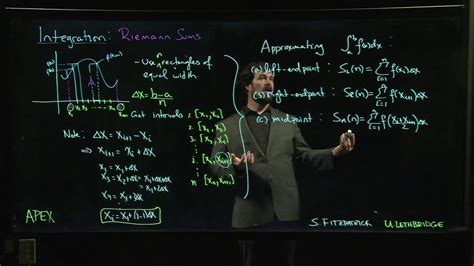 Integration: Riemann Sums
- Use n rectangles of
equal width
Δx = b-a
n
Got intervals
1. [x₁, x₂]
2. [x₂, x₃]
3. [x₃, x₄]
i. [xᵢ, xᵢ₊₁]
n. [xₙ, xₙ₊₁]
Note: Δx = xᵢ₊₁ - xᵢ
⇒ xᵢ₊₁ = xᵢ + Δx
x₂ = x₁ + Δx
xᵢ = x₁ + (i-1)Δx
Approximating ∫ₐᵇ f(x)dx:
(a) left-endpoint: S_L(n) = Σⁿᵢ₌₁ f(xᵢ)Δx
(b) right-endpoint: S_R(n) = Σⁿᵢ₌₁ f(xᵢ₊₁)Δx
(c) midpoint: S_M(n) = Σⁿᵢ₌₁ f(xᵢ+xᵢ₊₁/2)Δx
APEX
S. FITZPATRICK U. LETHBRIDGE